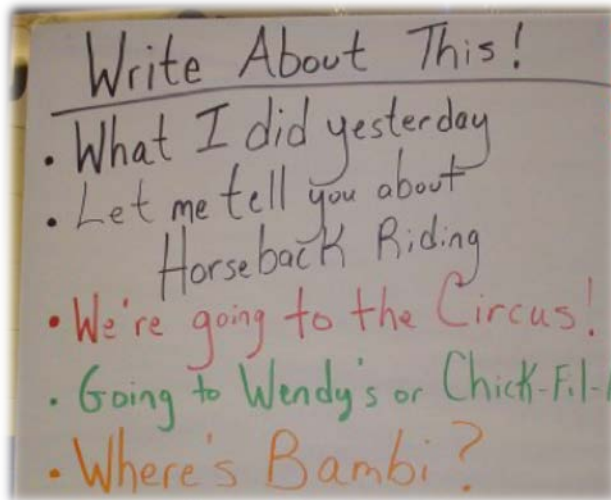 Write About This!
• What I did yesterday
• Let me tell you about
Horseback Riding
• We're going to the Circus!
• Going to Wendy's or Chick-Fil-
• Where's Bambi?